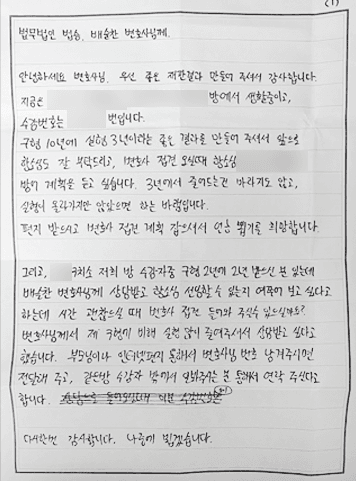 (1)
법무법인 법승, 배슬찬 변호사님께.
안녕하세요 변호사님. 우선 좋은 재판결과 만들어 주셔서 감사합니다.
지금은 방에서 생활중이고,
수감번호는 번입니다.
구형 10년에 실형 3년이라는 좋은 결과로 만들어 주셔서 앞으로
항소심도 잘 부탁드리고, 변호사 접견 오실때 항소심
방어 계획을 듣고 싶습니다. 3년에서 줄어드는건 바라지도 않고,
실형이 올라가지만 않았으면 하는 바램입니다.
편지 받으시고 변호사 접견 계획 잡으셔서 연통 뵙기를 희망합니다.
그리고, 구치소 저희 방 수감자중 구형 2년에 2년 받으신 분 있는데
배슬찬 변호사님께 상담받고 항소심 선임할 수 있는지 여쭈어 보고 싶다고
하는데 시간 괜찮으실 때 변호사 접견 들어와 주실수 있으실까요?
변호사님께서 제 구형에 비해 실형 많이 줄여주셔서 상담받고 싶다고
했습니다. 부모님이나 인터넷편지 통해서 변호사님 번호 남겨주시면
전달해 주고, 같은방 수감자 밖에서 봐주는 분 통해서 연락 주신다고
합니다.
다시한번 감사합니다. 나중에 뵙겠습니다.